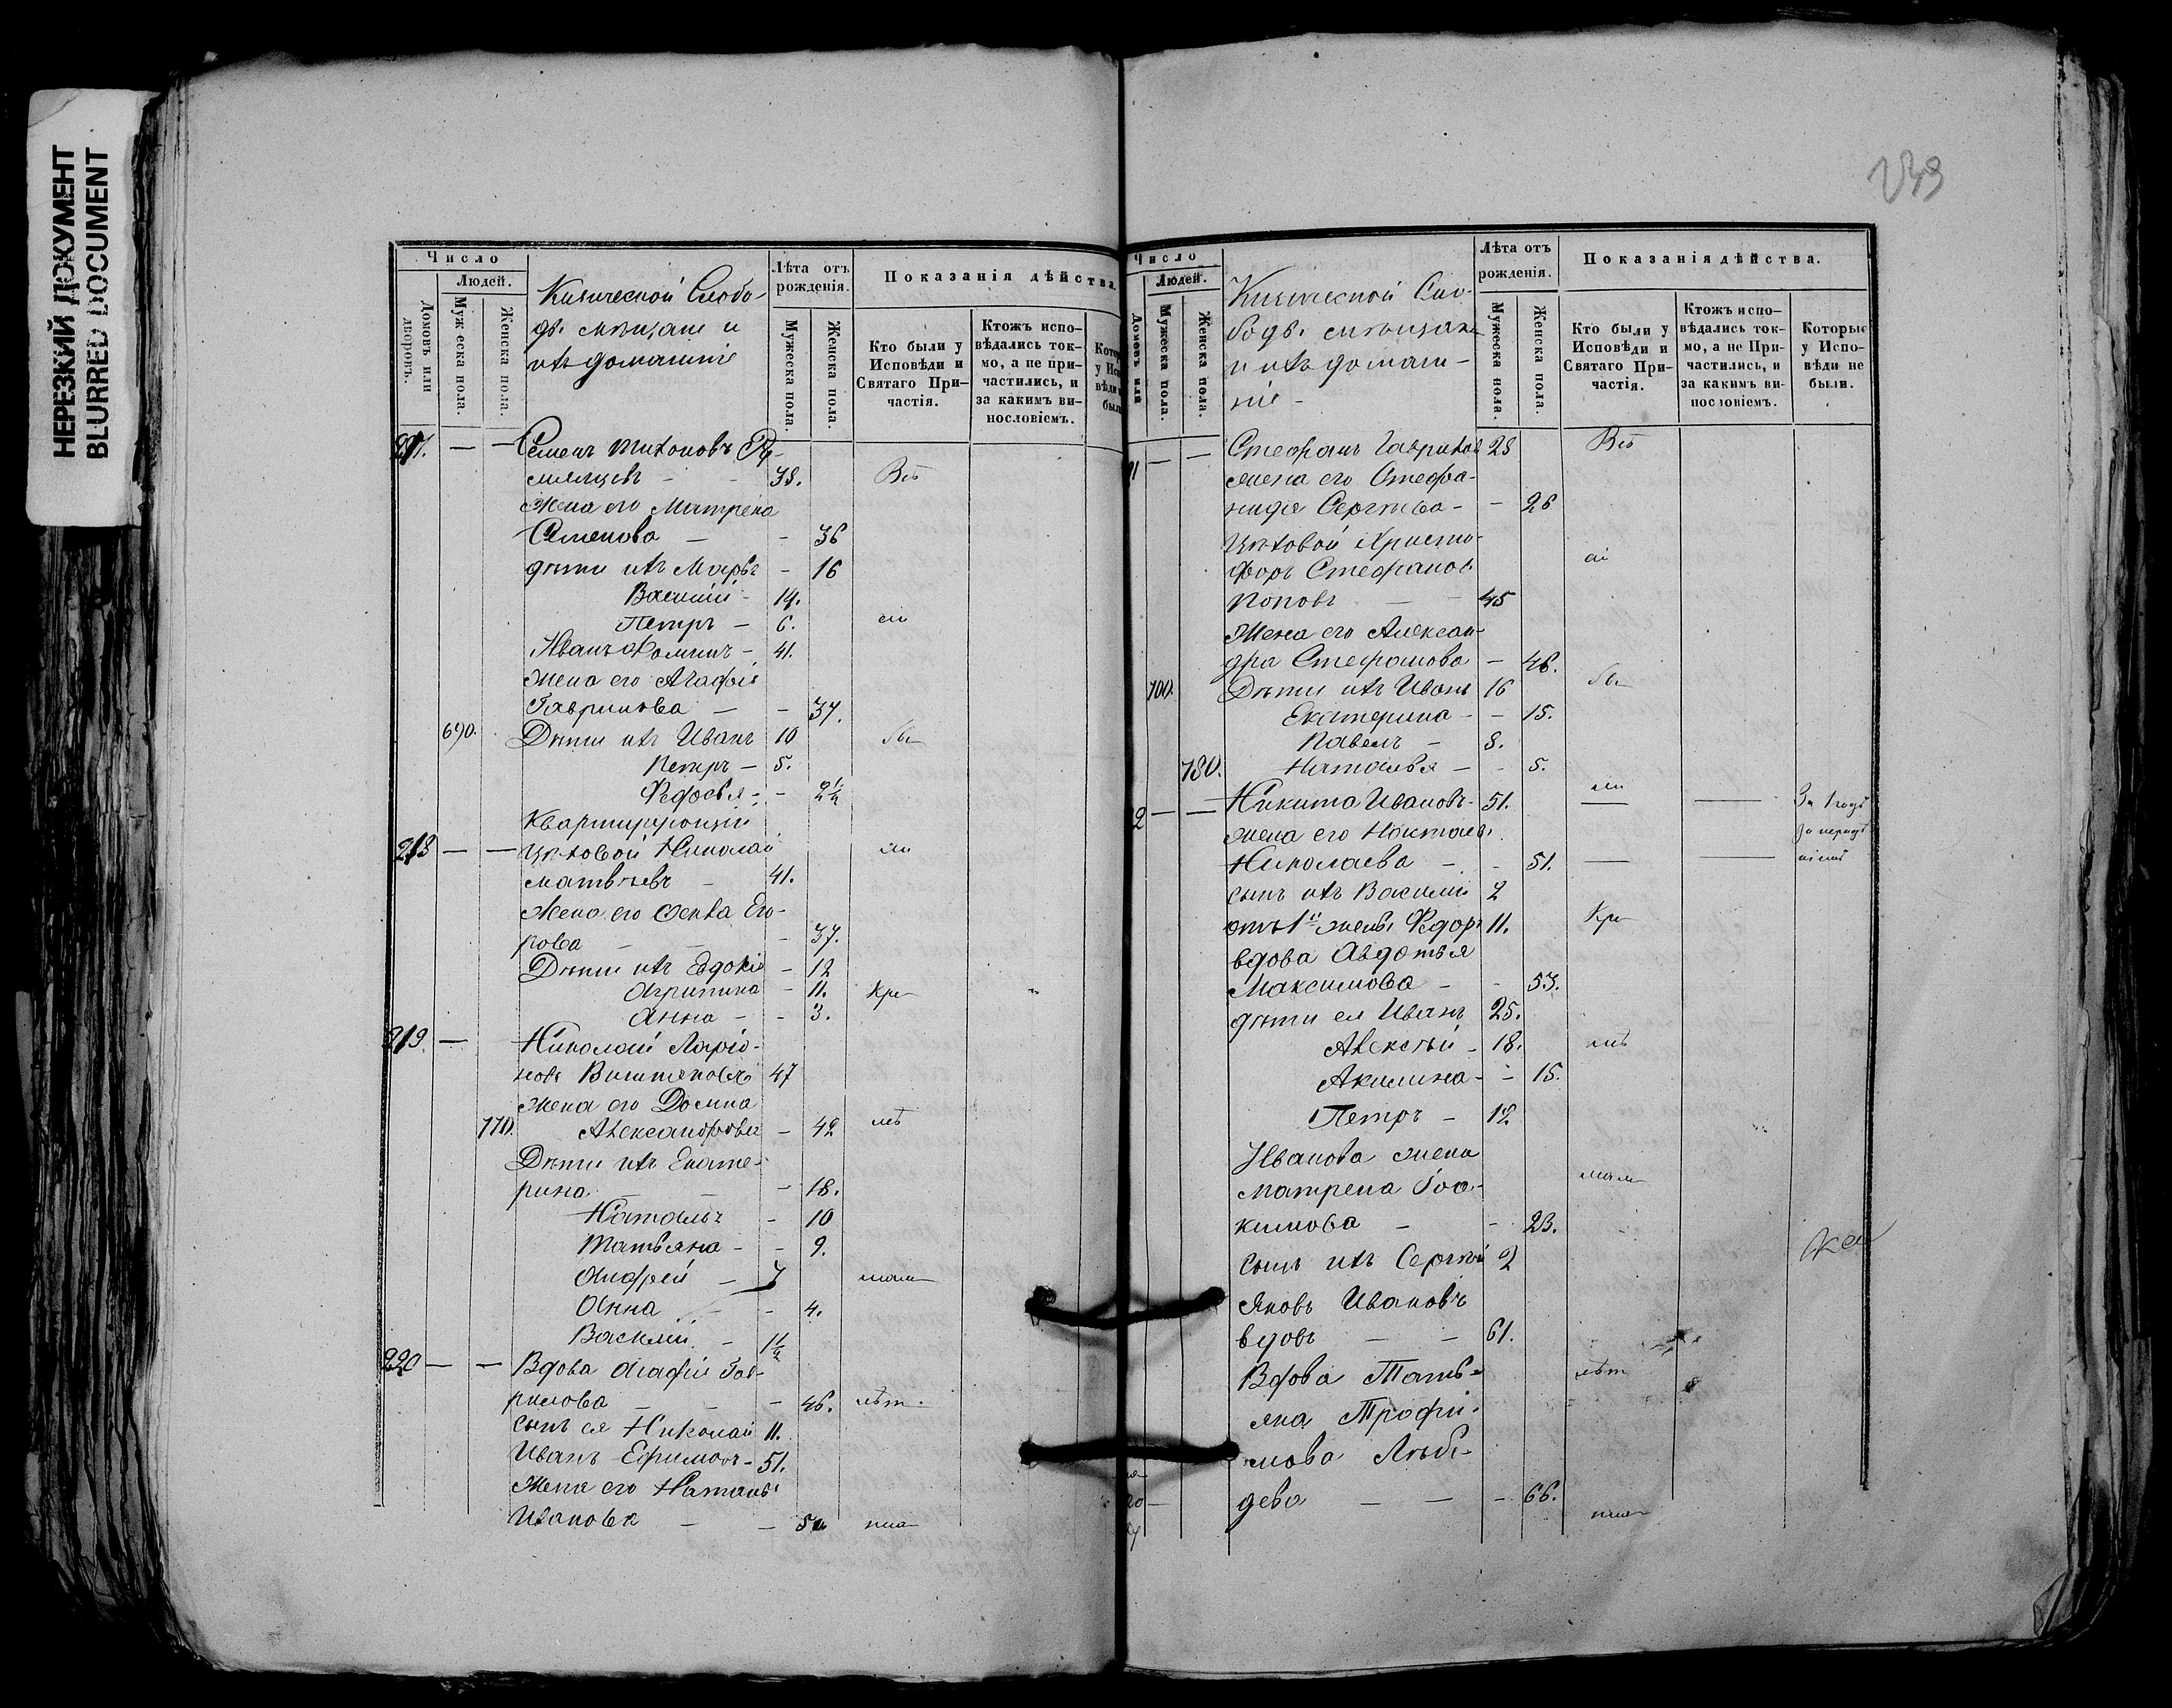 НЕРЕЗКИЙ ДОКУМЕНТ
BLURRED DOCUMENT
239
Число
Людей.
Домовъ или дворовъ.
Мужеска пола.
Женска пола.
Кизической Слобо-
ды мѣщане и
ихъ домашніе
Лѣта отъ рожденія.
Мужеска пола.
Женска пола.
Показанія дѣйства.
Кто были у Исповѣди и Святаго При-частія.
Ктожъ испо-вѣдались ток-мо, а не при-частились, и за какимъ ви-нословіемъ.
217. — — Семенъ Тихоновъ Ру-
мянцевъ - 38. Всѣ
Жена его Матрена
Семенова — - 36
дѣти ихъ Марья - 16
Василій - 14.
Петръ — 6. сіи
Иванъ Фоминъ - 41.
Жена его Агафья
Гаврилова — - 37.
690. Дѣти ихъ Иванъ 10 бы
Петръ — 5.
Федосья - - 2½
Квартирующій
218 — — Цѣховой Николай ли
Матвѣевъ - 41.
Жена его Фекла Его-
рова - - 37.
Дѣти ихъ Евдокія - 12
Агрипина - 11. Кре
Анна - - 3.
219. — Николай Ларіо-
новъ 47
Жена его Домна
770. Александрова - 42
Дѣти ихъ Екате-
рина - 18.
Наталья - 10
Татьяна - - 9.
Андрей - 7
Анна - 4.
Василій - 1½
220 — — Вдова Агафья Гав-
рилова - - 46. лѣт
сынъ ея Николай 11.
Иванъ Ефимовъ - 51.
Жена его Наталья
Иванова — - 50
Число
Людей.
Домовъ или
Мужеска пола.
Женска пола.
Кизической Сло-
боды мѣщане
и ихъ домаш-
ніе -
Лѣта отъ рожденія.
Мужеска пола.
Женска пола.
Показанія дѣйства.
Кто были у Исповѣди и Святаго При-частія.
Ктожъ испо-вѣдались ток-мо, а не При-частились, и за какимъ ви-нословіемъ.
Которые у Испо-вѣди не были.
1 — — Стефанъ Гаврилов 28 Всѣ
жена его Стефа-
нида Сергѣева - - 26
Цѣховой Христо-
форъ Стефанов сі
Поповъ — - 45
Жена его Алексан-
дра Стефанова - 46.
700. Дѣти ихъ Иванъ 16 бы
Екатерина - - 15.
Павелъ - 8.
780. Наталья - - 5.
2 — — Никита Ивановъ - 51. ли
жена его Наталья
Николаева - - 51. — —
сынъ ихъ Василій 2
отъ 1й жены Федоръ 11. Кре
вдова Авдотья
Максимова - - 53.
дѣти ея Иванъ 25.
Алексѣй - 18.
Акилина - - 15.
Петръ - 12.
Иванова жена
Матрена Іоа-
кимова - - 23.
сынъ ихъ Сергѣй 2
Яковъ Ивановъ
вдовъ — — 61.
Вдова Татья-
яна Трофи- лѣт
мова
дева — — - 66.